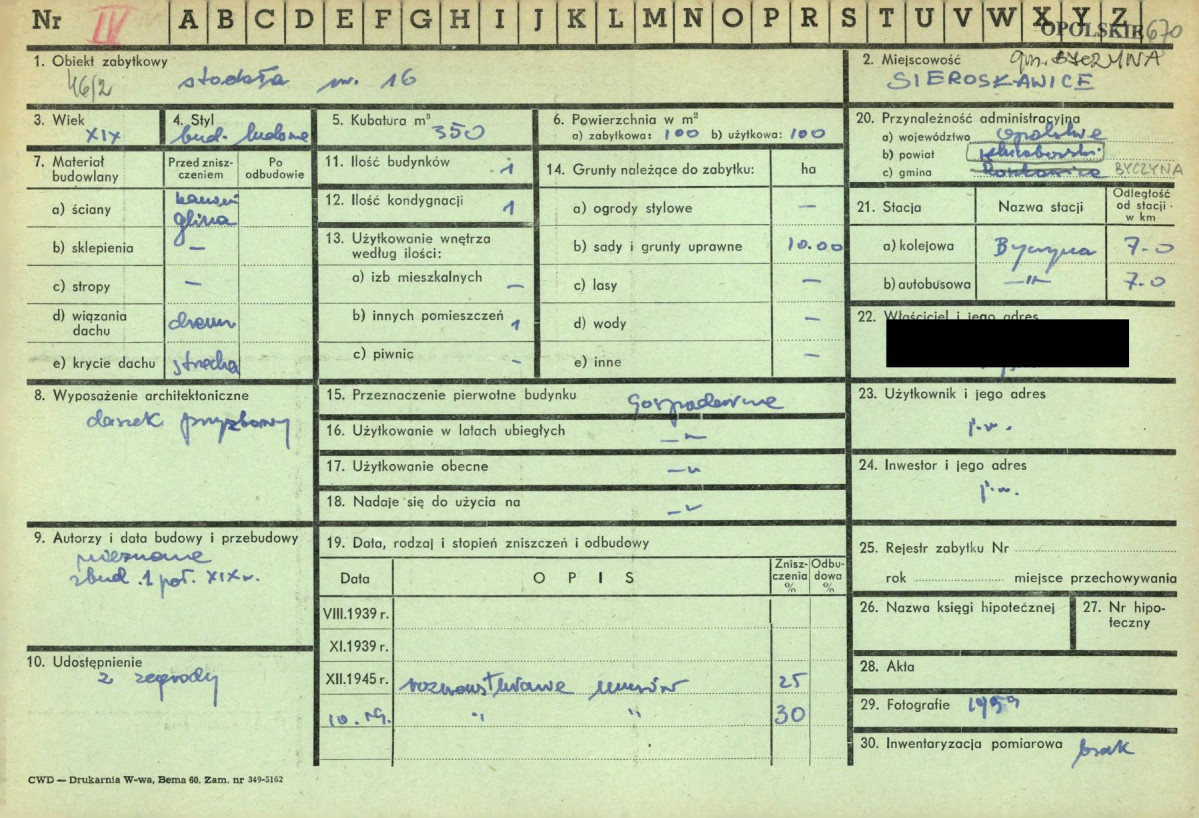 Nr IV A B C D E F G H I J K L M N O P R S T U V W X Y Z
OPOLSKIE 670
1. Obiekt zabytkowy
46/2 stodoła nr. 16
2. Miejscowość gm. BYCZYNA
SIEROSŁAWICE
3. Wiek
XIX
4. Styl
bud. ludowe
5. Kubatura m³ 350
6. Powierzchnia w m²
a) zabytkowa: 100 b) użytkowa: 100
20. Przynależność administracyjna
a) województwo opolskie
b) powiat kluczborski
c) gmina BYCZYNA
7. Materiał budowlany
Przed zniszczeniem
Po odbudowie
a) ściany kamień
glina
b) sklepienia —
c) stropy —
d) wiązania dachu drewn
e) krycie dachu strzecha
11. Ilość budynków 1
12. Ilość kondygnacji 1
13. Użytkowanie wnętrza
według ilości:
a) izb mieszkalnych —
b) innych pomieszczeń 1
c) piwnic -
14. Grunty należące do zabytku: ha
a) ogrody stylowe —
b) sady i grunty uprawne 10.00
c) lasy —
d) wody —
e) inne —
21. Stacja Nazwa stacji Odległość od stacji w km
a) kolejowa Byczyna 7-0
b) autobusowa —"— 7-0
22. Właściciel i jego adres
8. Wyposażenie architektoniczne
daszek przyzbowy
15. Przeznaczenie pierwotne budynku gospodarcze
16. Użytkowanie w latach ubiegłych —"—
17. Użytkowanie obecne —"—
18. Nadaje się do użycia na —"—
23. Użytkownik i jego adres
j.w.
24. Inwestor i jego adres
j.w.
9. Autorzy i data budowy i przebudowy
nieznane
zbud. 1 poł. XIX w.
10. Udostępnienie
z zagrody
19. Data, rodzaj i stopień zniszczeń i odbudowy
Data OPIS Zniszczenia % Odbudowa %
VIII.1939 r.
XI.1939 r.
XII.1945 r. rozwarstwianie murów 25
10. " " 30
25. Rejestr zabytku Nr
rok miejsce przechowywania
26. Nazwa księgi hipotecznej
27. Nr hipoteczny
28. Akta
29. Fotografie 1959
30. Inwentaryzacja pomiarowa brak
CWD — Drukarnia W-wa, Bema 60. Zam. nr 349-5162